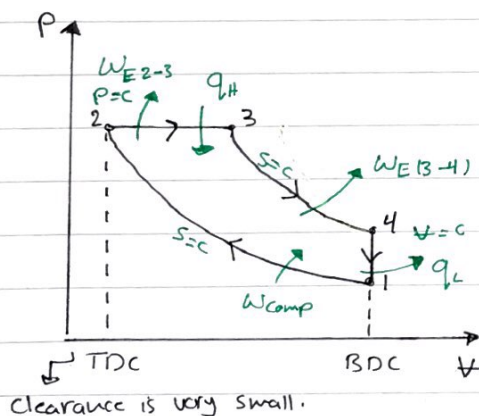 P
WE2-3
P=C
qH
2
3
S=C
WE(3-4)
4
V=C
S=C
qL
1
Wcomp
TDC
BDC
V
Clearance is very small.